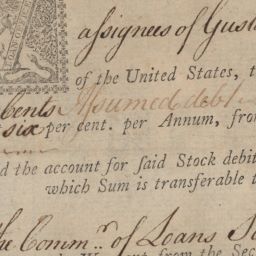 assignees of Gust
of the United States, t
Cents Assumed debt
six per cent. per Annum, fro
d the account for ſaid Stock debit
which Sum is transferable t
the Comm.r of Loans
from the Sec